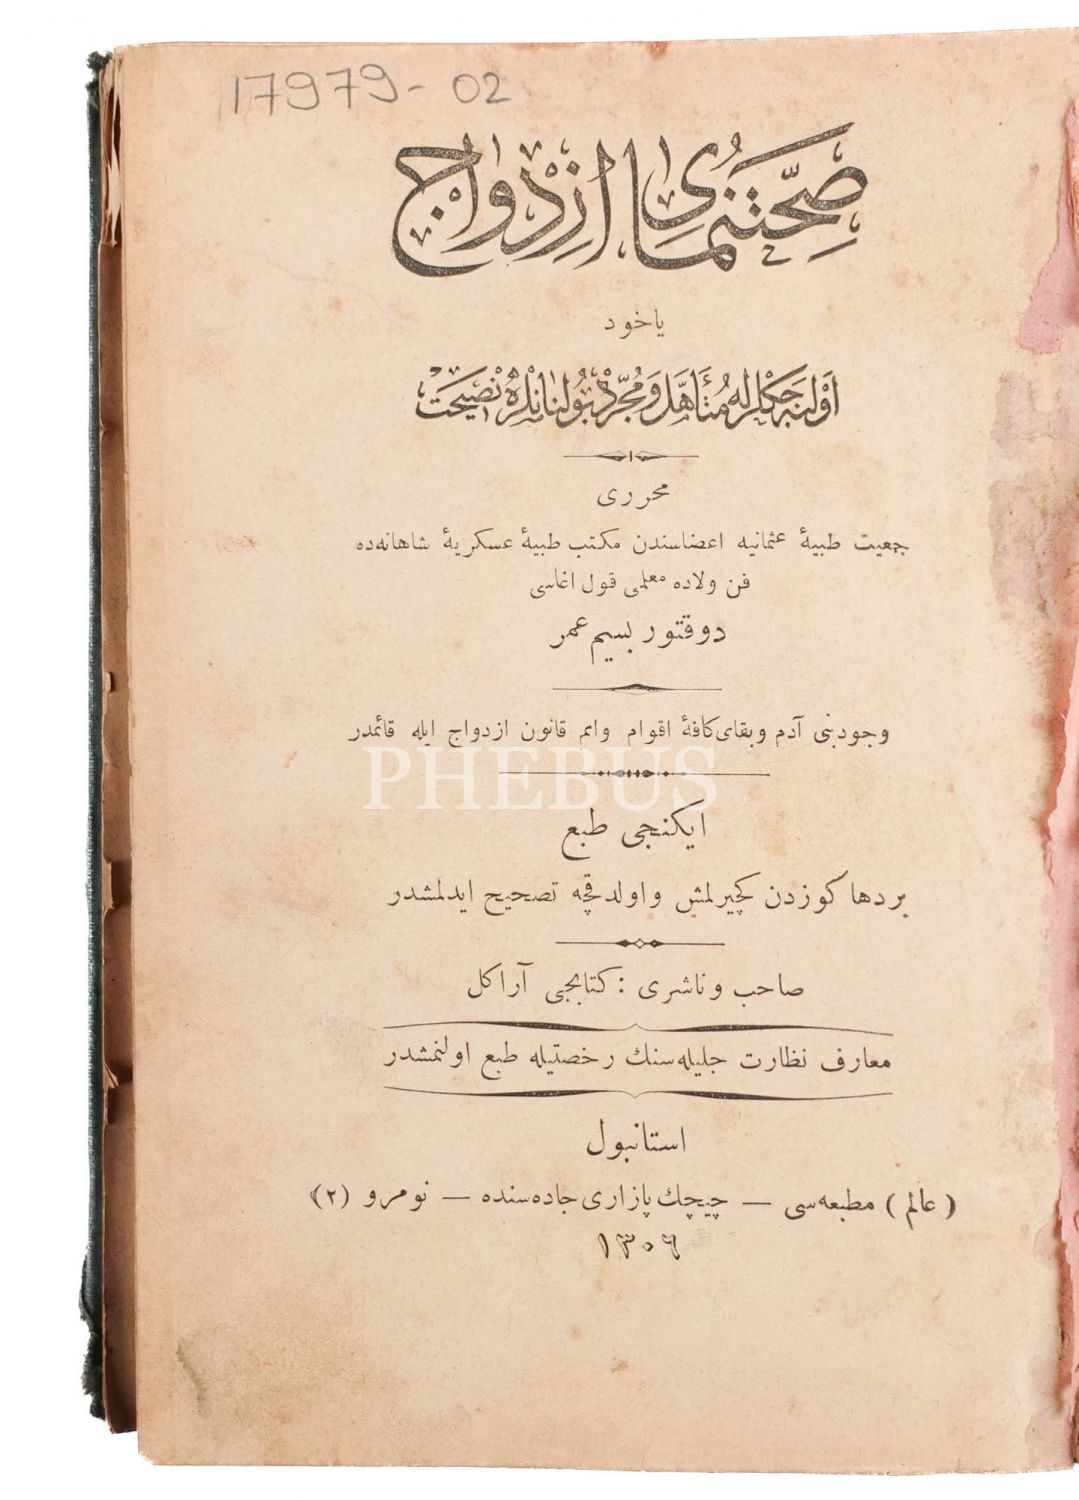 17979-02
صحتنمای ازدواج
یاخود
اولنه‌جكلرله متأهل و مجرد بولنانلره نصیحت
محرری
جمعیت طبیهٔ عثمانیه اعضاسندن مكتب طبیهٔ عسكریهٔ شاهانه‌ده
فن ولاده معلمی قول اغاسی
دوقتور بسیم عمر
وجود بنی آدم و بقای كافهٔ اقوام وامم قانون ازدواج ایله قائمدر
PHEBUS
ایكنجی طبع
بردها كوزدن كچیرلمش واولدقچه تصحیح ایدلمشدر
صاحب وناشری : كتابجی آراكل
معارف نظارت جلیله‌سنك رخصتیله طبع اولنمشدر
استانبول
(عالم) مطبعه‌سی — چیچك پازاری جاده‌سنده — نومرو (٢)
١٣٠٦